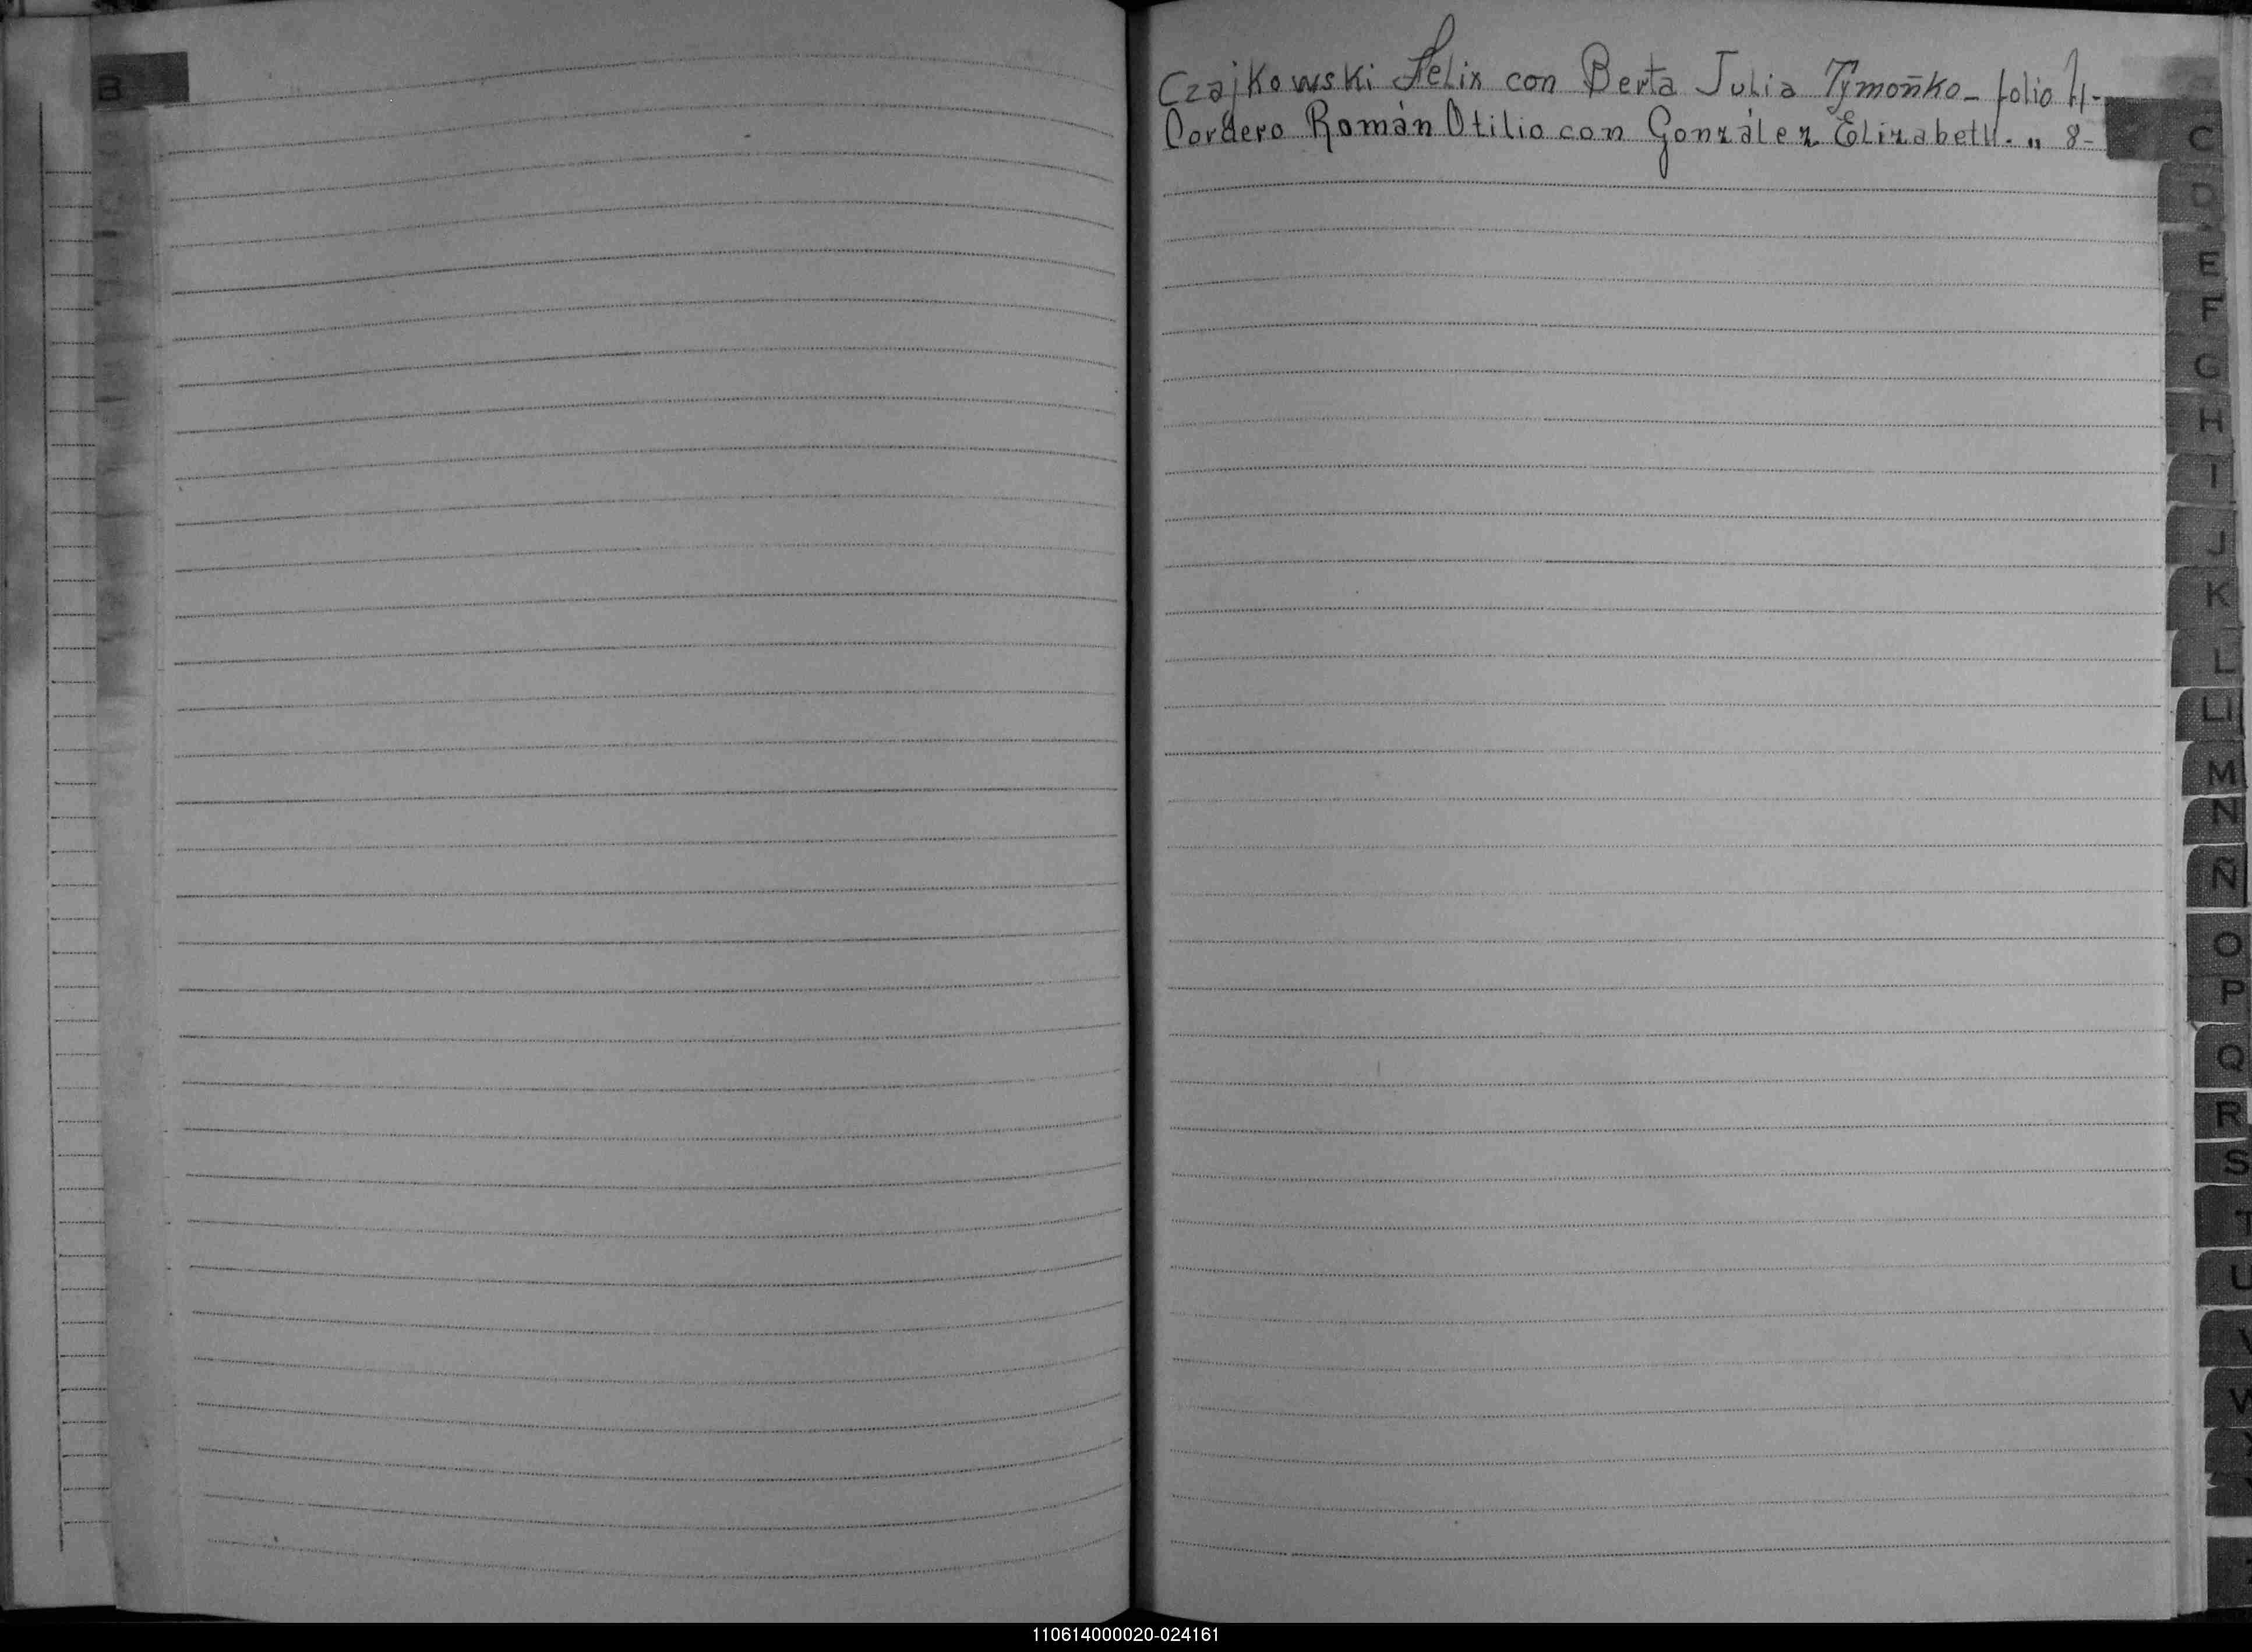 B
Czajkowski Felix con Berta Julia Tymoñko - folio 4-
Cordero Román Otilio con González Elizabeth. „ 8-
C
D
E
F
G
H
I
J
K
L
Ll
M
N
Ñ
O
P
Q
R
S
T
U
V
W
110614000020-024161